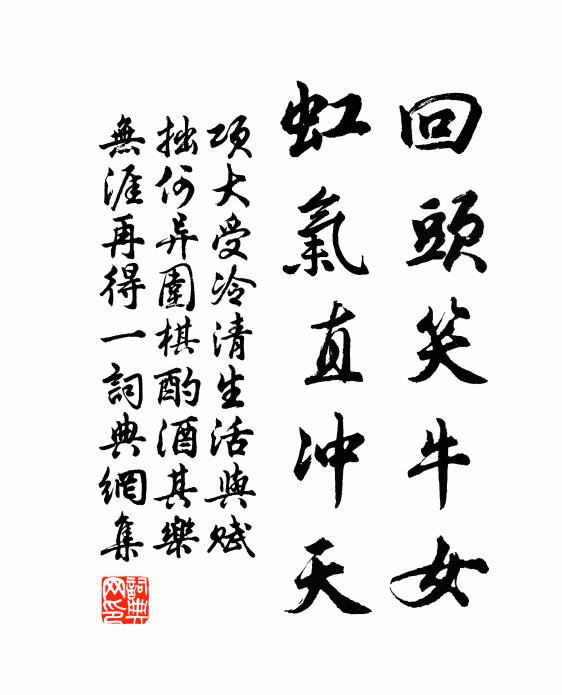 回頭笑牛女
虹氣直冲天
項大受冷清生活與賦
拙何异圍棋酌酒其樂
無涯再得一詞典網集
詞典
网印